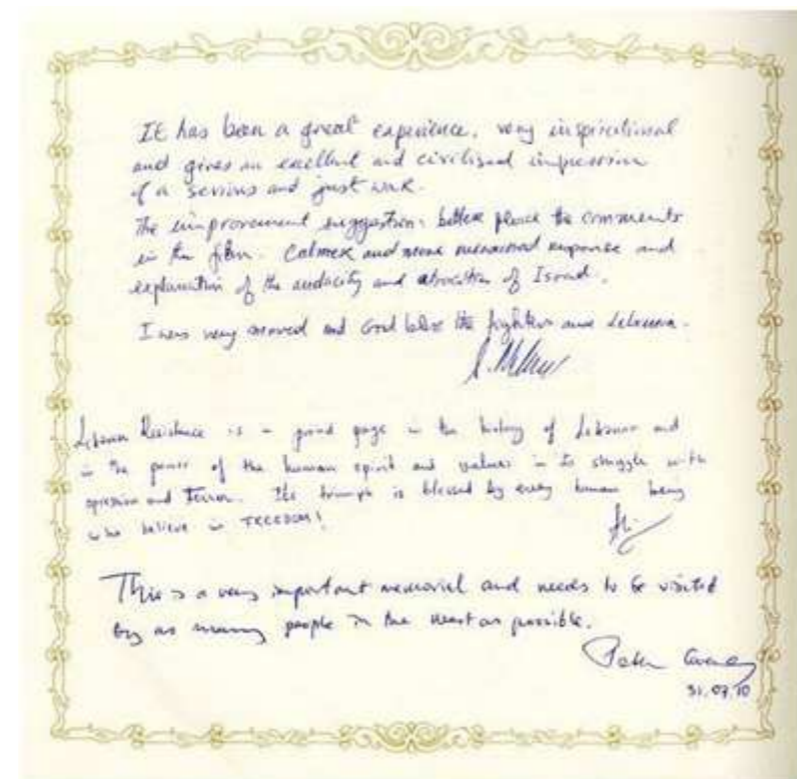 It has been a great experience, very inspirational
and gives an excellent and civilised impression
of a serious and just war.
The improvement suggestion: better place the comments
in the film. Calmer and more measured response and
explanation of the audacity and atrocities of Israel.
I was very moved and God bless the fighters and Lebanon.
Lebanon Resistance is a proud page in the history of Lebanon and
in the power of the human spirit and values in its struggle with
opression and Terror. Its triumph is blessed by every human being
who believe in FREEDOM!
This is a very important memorial and needs to be visited
by as many people in the West as possible.
Peter
31.07.10